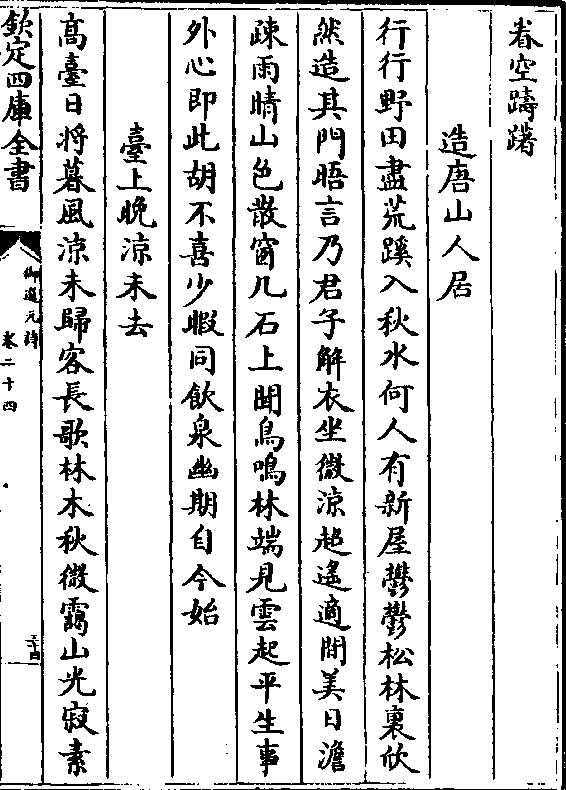 眷空躊躇
造唐山人居
行行野田盡荒蹊入秋水何人有新屋鬱鬱松林裏欣
然造其門晤言乃君子解衣坐微涼超遙適閒美日澹
疎雨晴山色散窗几石上聞鳥鳴林端見雲起平生事
外心即此胡不喜少暇同飲泉幽期自今始
臺上晚涼未去
高臺日將暮風涼未歸客長歌林木秋微靄山光寂素
欽定四庫全書
御選元詩
卷二十四
三十四